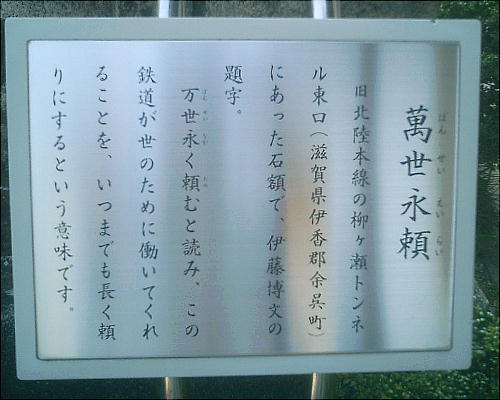 萬世永頼
ばんせいえいらい
旧北陸本線の柳ヶ瀬トンネ
ル東口(滋賀県伊香郡余呉町)
にあった石額で、伊藤博文の
題字。
万世永く頼むと読み、この
ばんせい たの
鉄道が世のために働いてくれ
ることを、いつまでも長く頼
りにするという意味です。